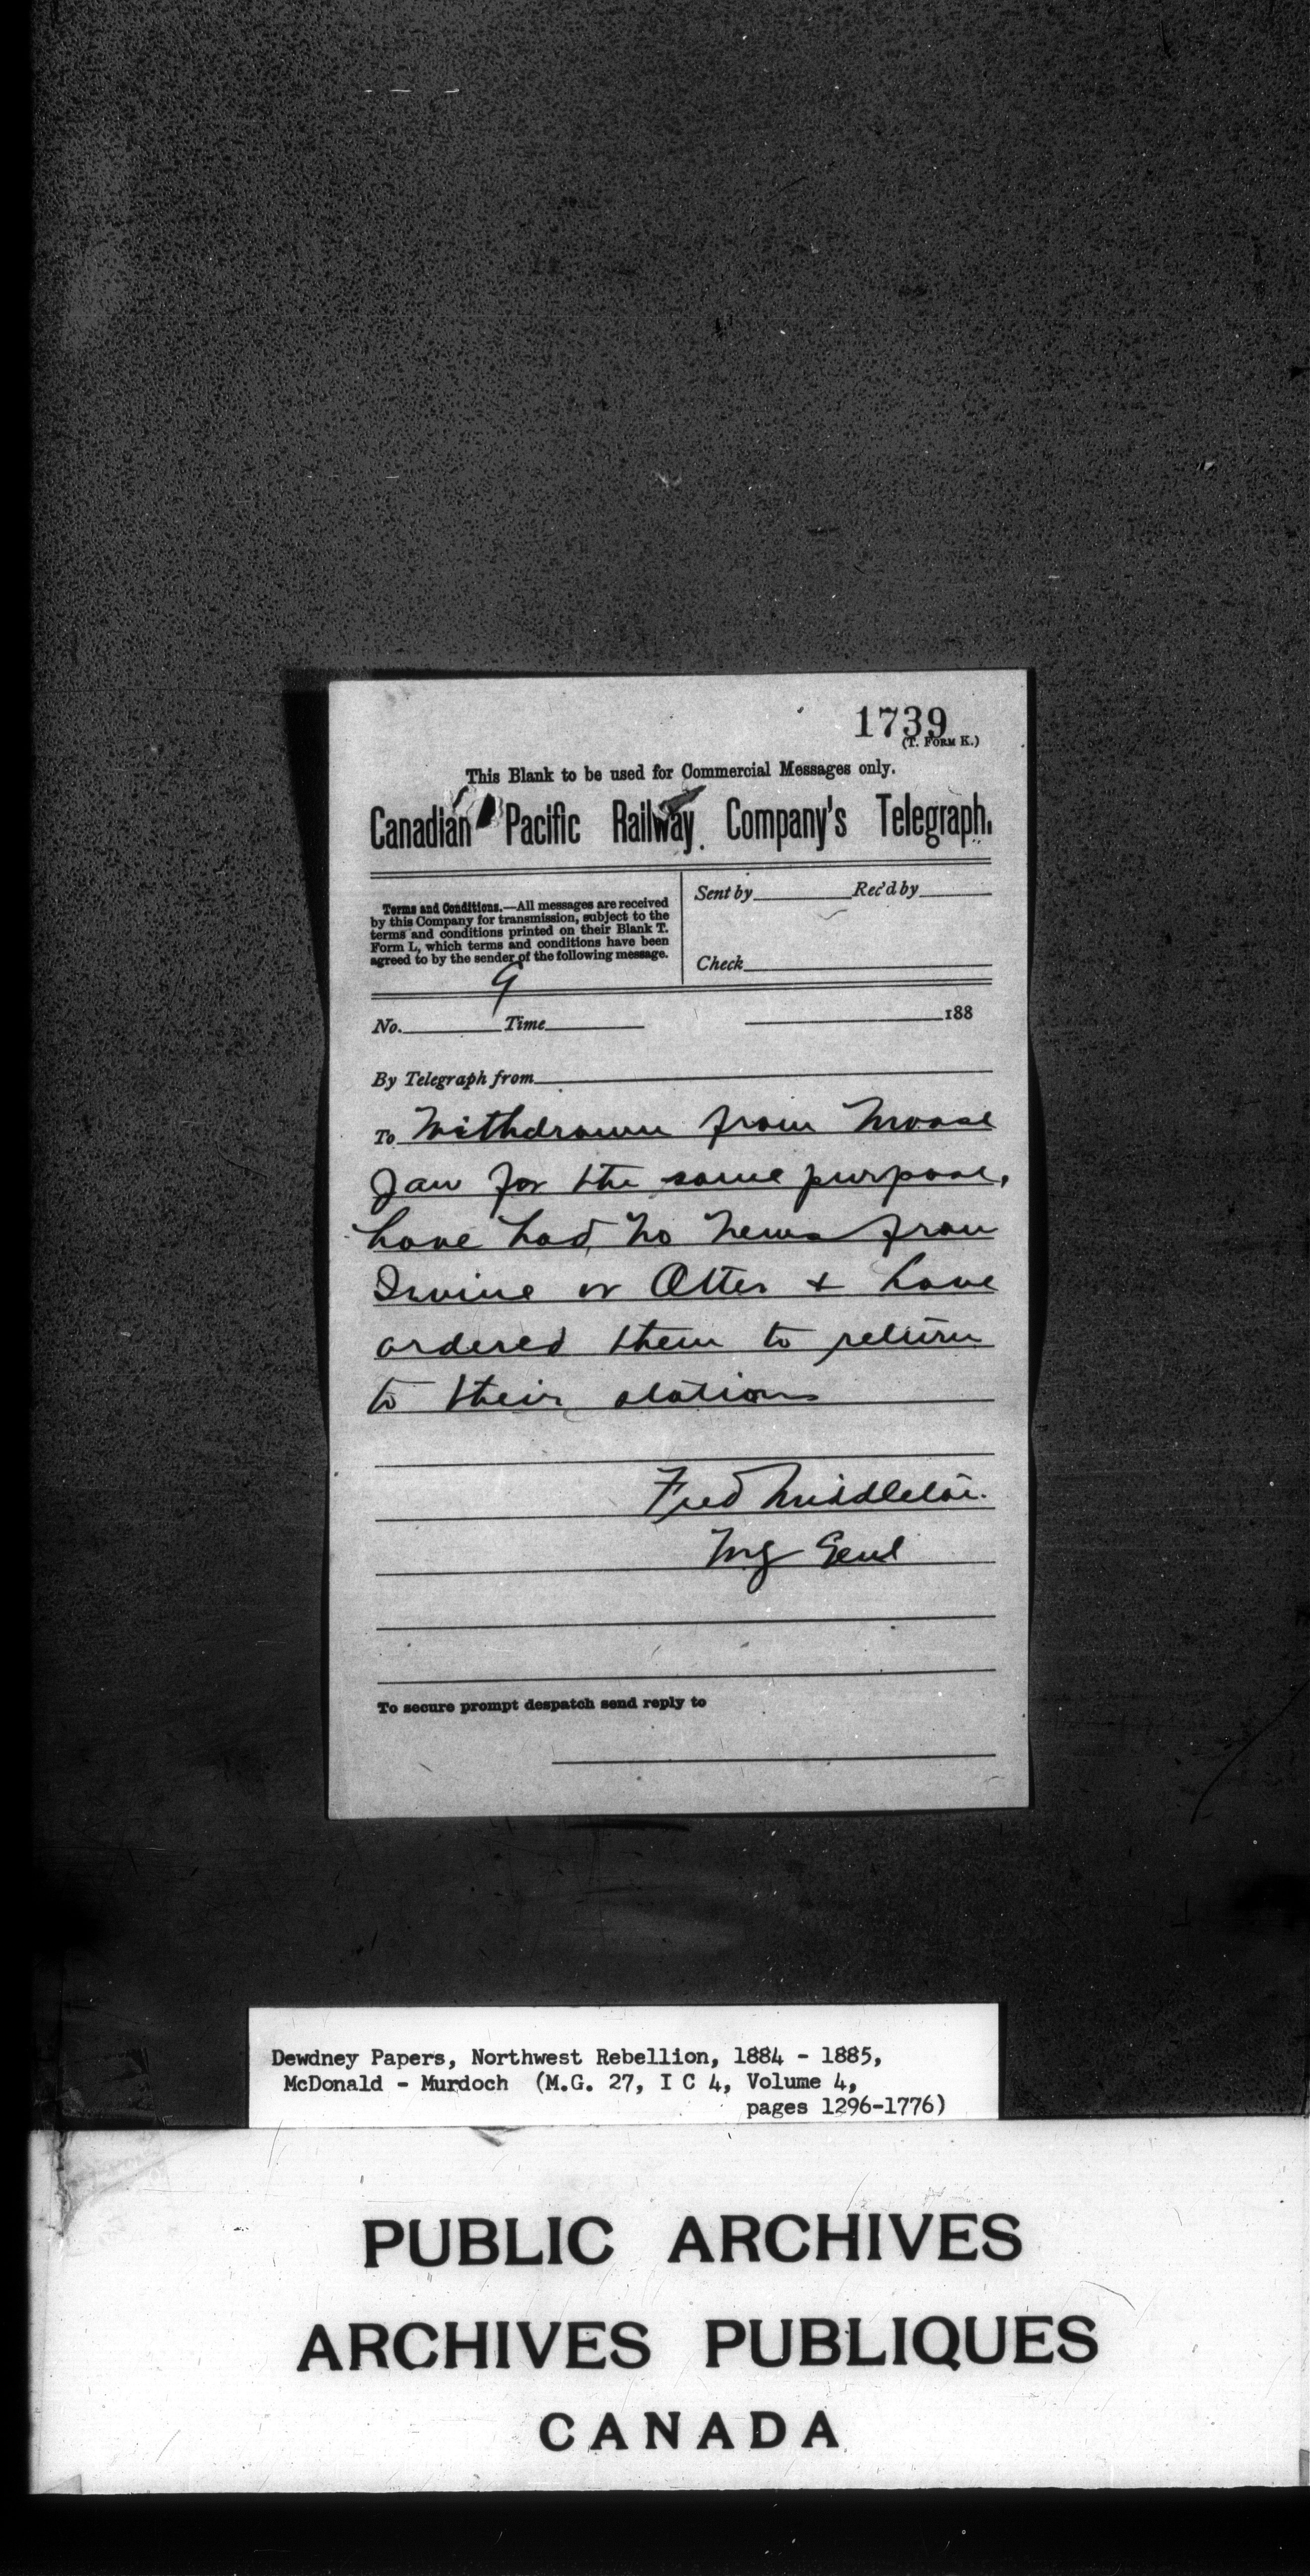 1739
(T. FORM K.)
This Blank to be used for Commercial Messages only.
Canadian Pacific Railway Company's Telegraph.
Terms and Conditions.—All messages are received
by this Company for transmission, subject to the
terms and conditions printed on their Blank T.
Form L, which terms and conditions have been
agreed to by the sender of the following message.
Sent by Rec'd by
Check
9
No. Time 188
By Telegraph from
To Withdrawn from Moose
Jaw for the same purpose,
have had no news from
Irvine or Otter + have
ordered them to return
to their stations
Fred Middleton
Mg Genl
To secure prompt despatch send reply to
Dewdney Papers, Northwest Rebellion, 1884 - 1885,
McDonald - Murdoch (M.G. 27, I C 4, Volume 4,
pages 1296-1776)
PUBLIC ARCHIVES
ARCHIVES PUBLIQUES
CANADA